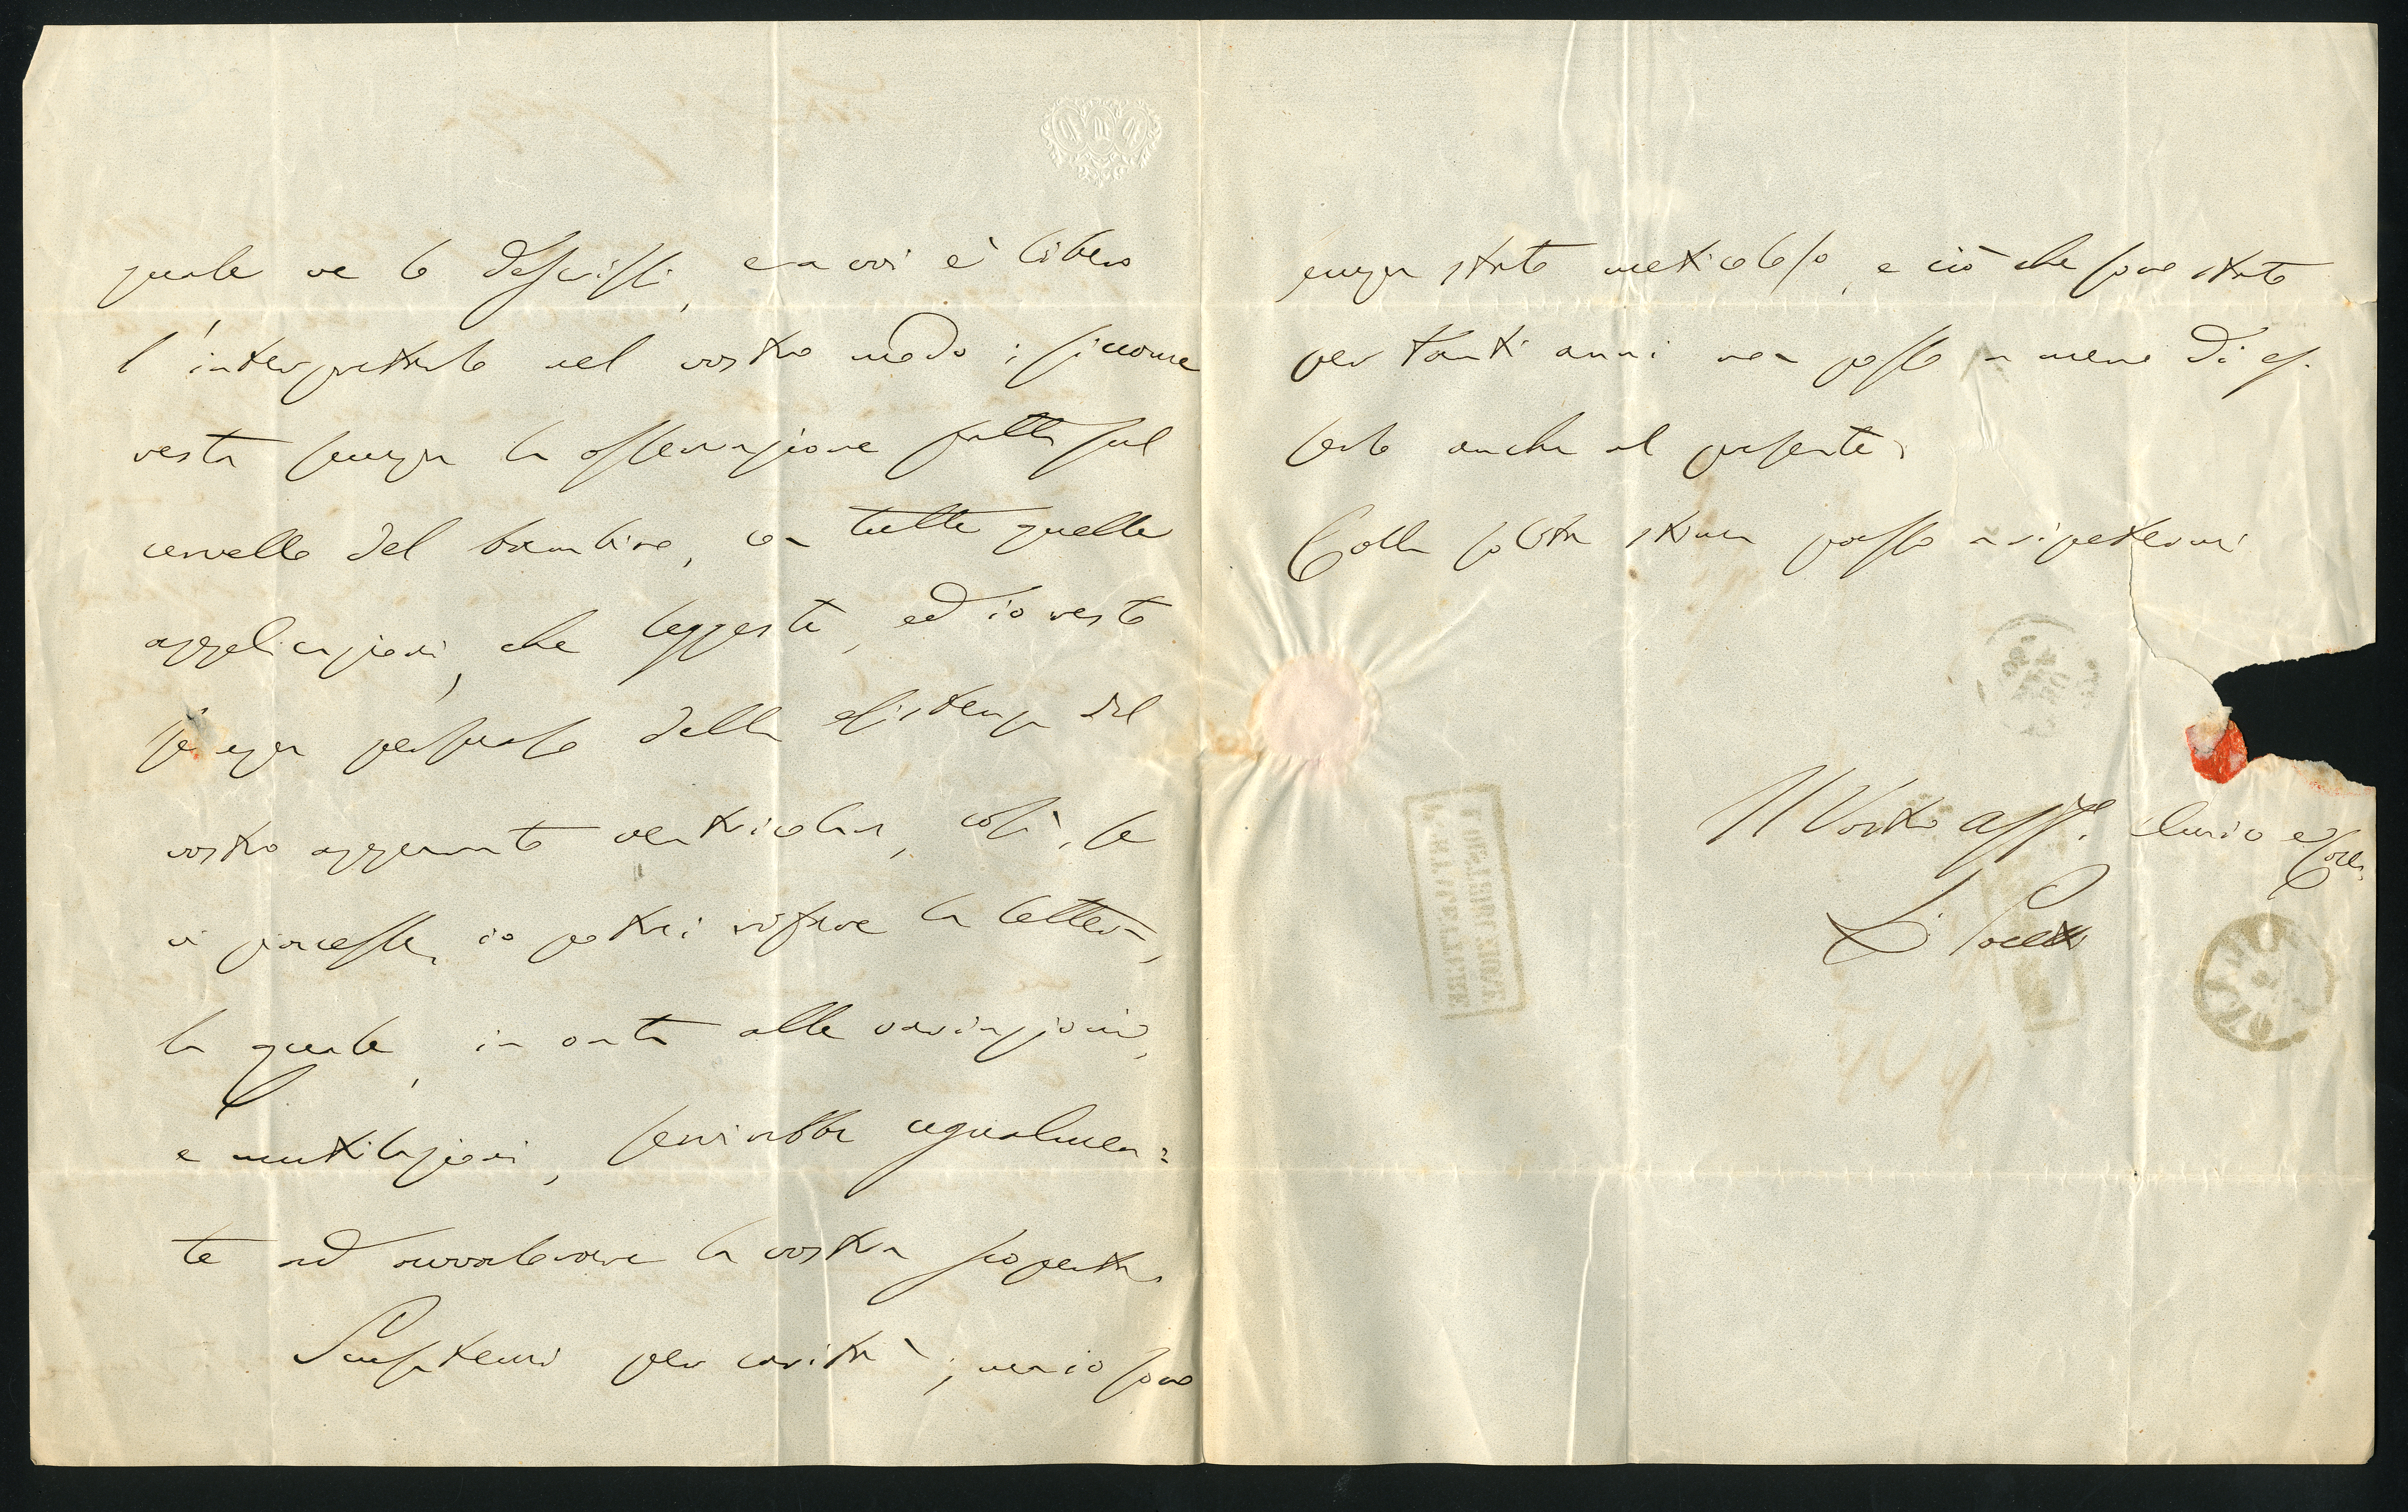 quale ve lo descrissi, e a voi è libero
l'interpretarlo nel vostro modo; siccome
resta senza la osservazione fatta sul
cervello del bambino, con tutte quelle
applicazioni, che leggeste, ed io resto
senza persuaso della esistenza del
vostro apparato ventricolar, così, se
vi piacesse, io potrei rifare la lettera,
la quale, in onta alle variazioni,
e mutilazioni, servirebbe egualmen=
te ad avvalorare la vostra scoperta.
Scusatemi per carità; ma io sono
senza stato meticoloso, e ciò che sono stato
per tanti anni non posso a meno di es-
serlo anche al presente.
Colla solita stima passo a ripetermi
Il Vostro aff.o Amico e Coll.
L.
DISTRIBUZIONE